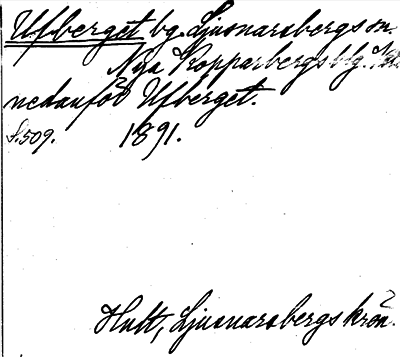 Ufberget bg. Ljusnarsbergs sn.
Nya Kopparbergs blg.
nedanför Ufberget.
S. 509. 1891.
Hult, Ljusnarsbergs krön.